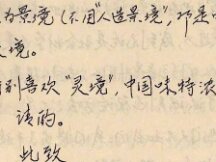 为景境（不用“人造景境”，那是
境。
特别喜欢“灵境”，中国味特浓
法的。
此致